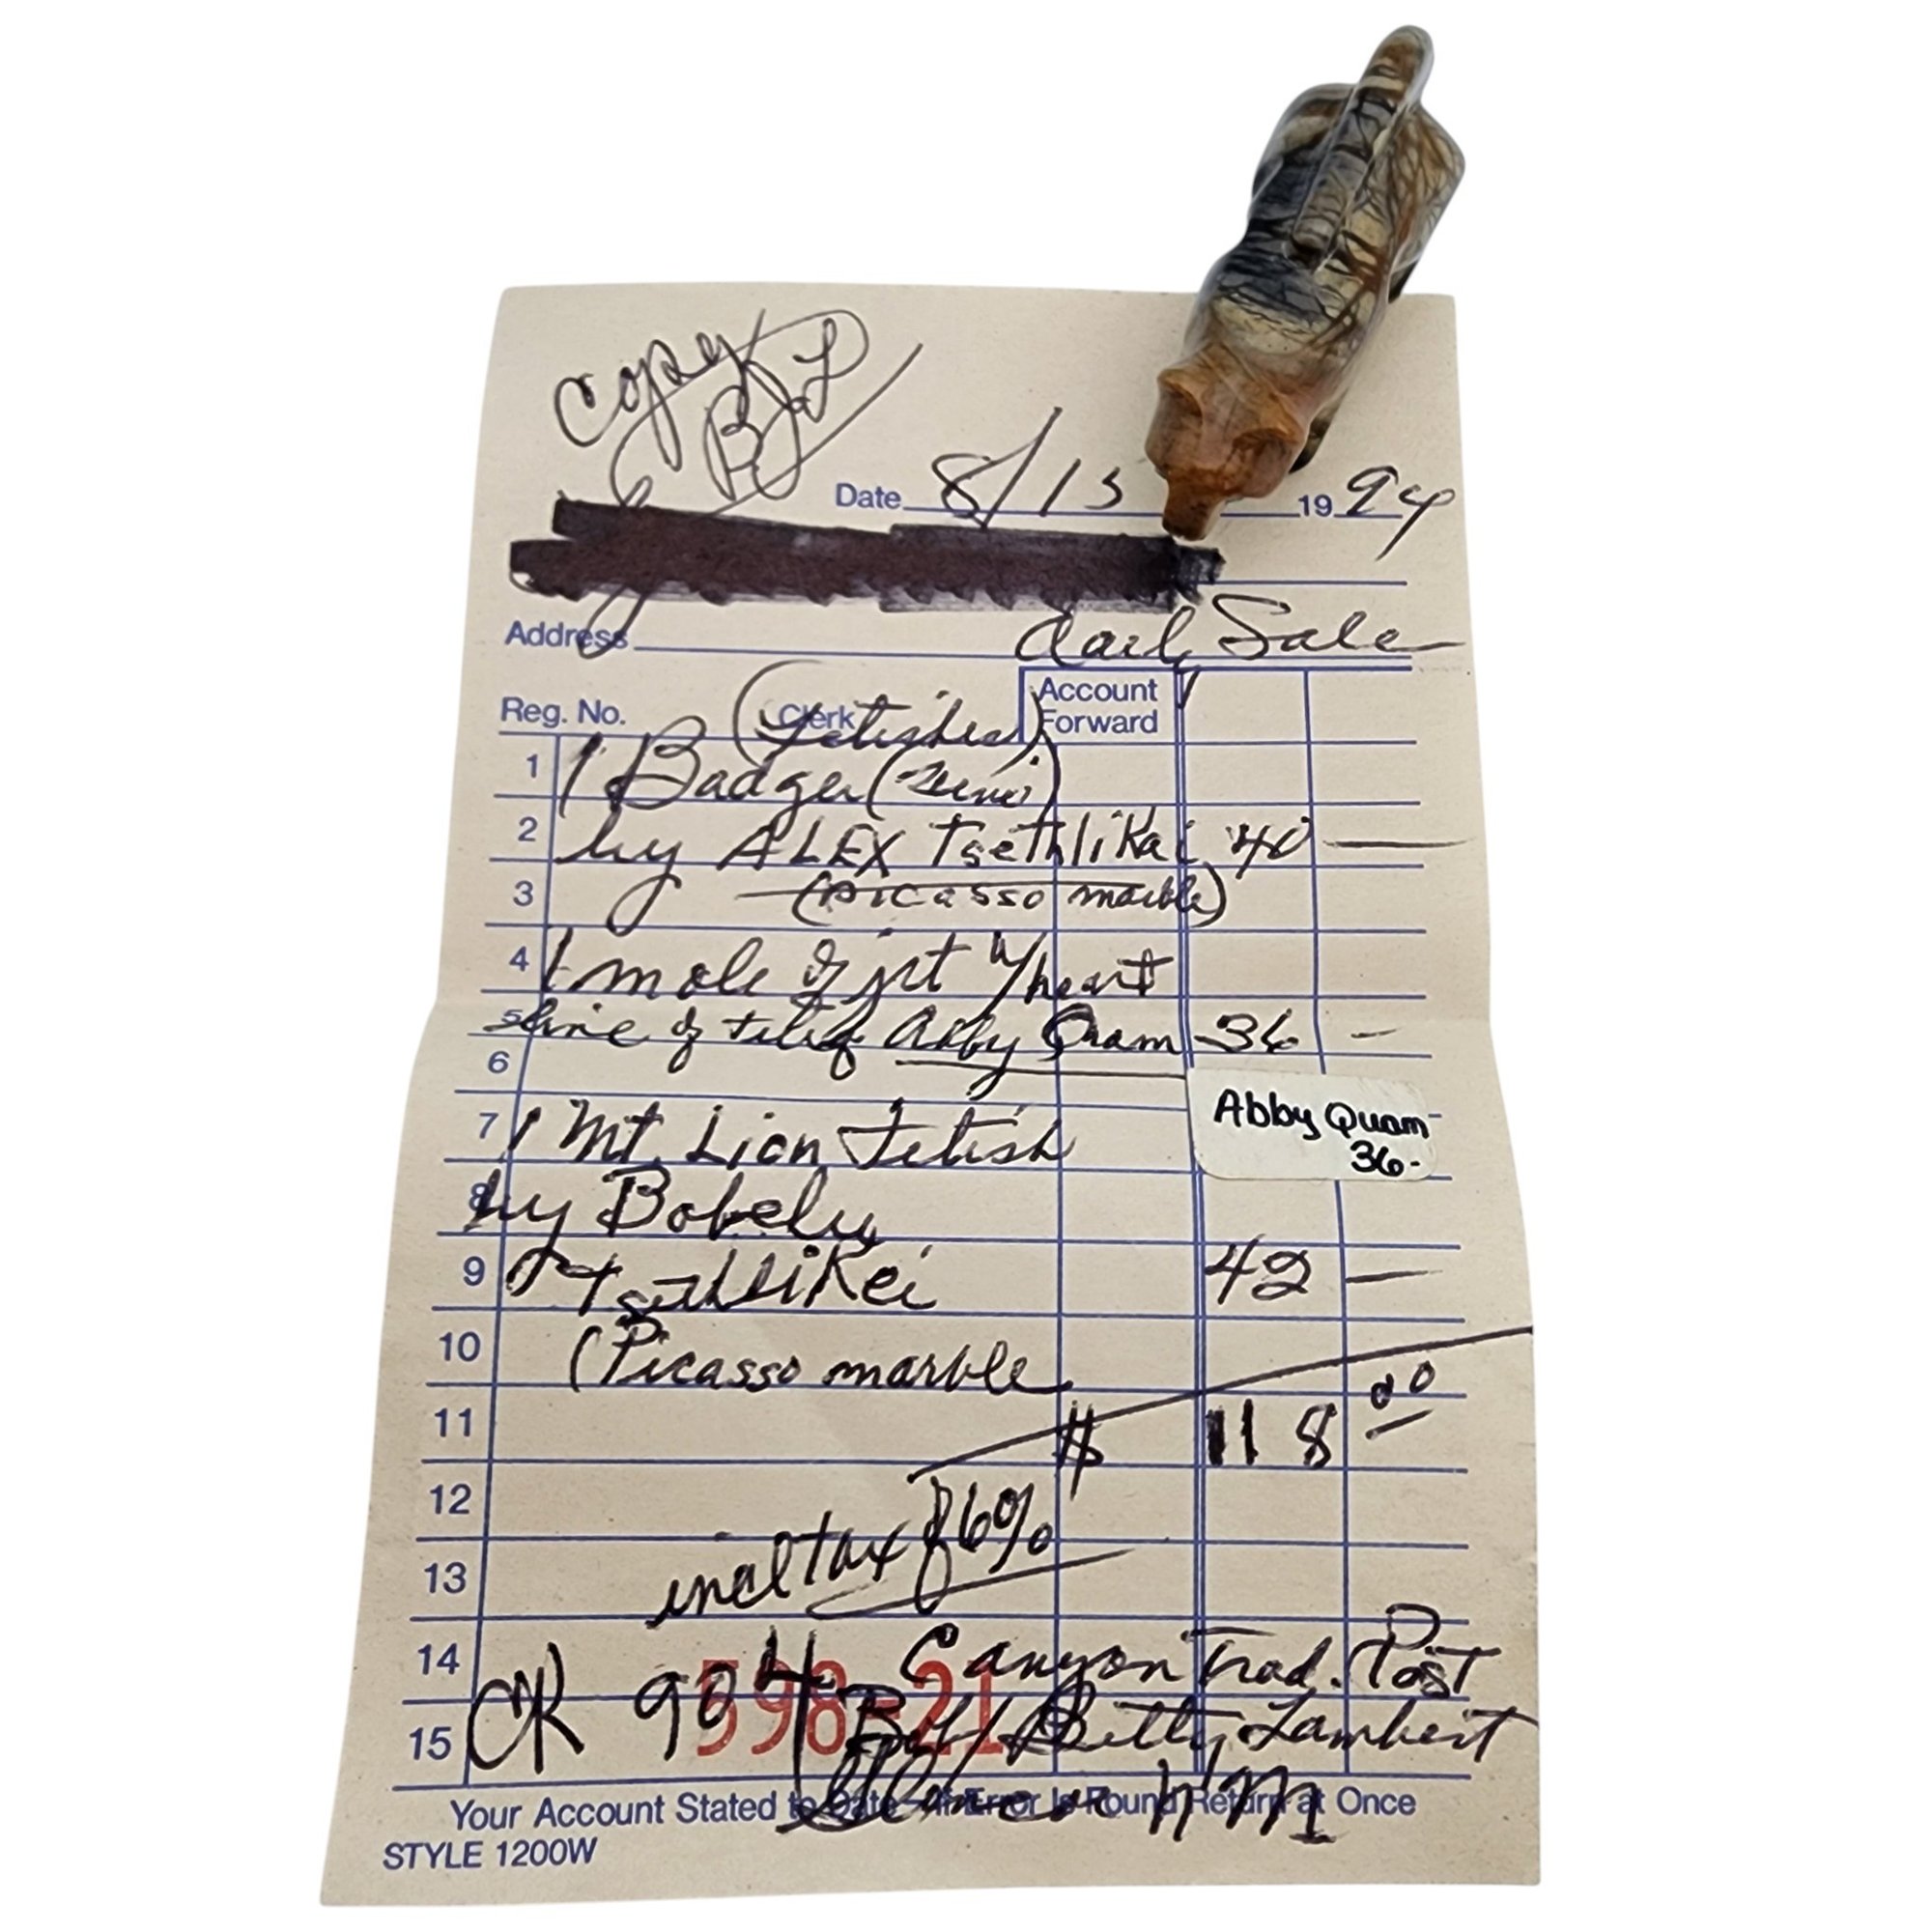 Copy
BJL
Date 8/13 1994
Address daily Sale
(Fetishes)
Reg. No. Clerk Account Forward
1 1 Badger (Zuni)
2 by ALEX Tsethlikai 40 —
3 (picasso marble)
4 1 mole of jet w/heart
5 line of Abby Quam 36 —
6
Abby Quam
36-
7 1 Mt. Lion Fetish
8 by Bobelu
9 Tsethlikei 42 —
10 (Picasso marble
11 $ 118 00
12
incl tax 6%
13
14 Canyon Trad. Post
598-21
15 CK 994 Bob/Betty Lambert
NM
Your Account Stated to Date – If Error Is Found Return at Once
STYLE 1200W